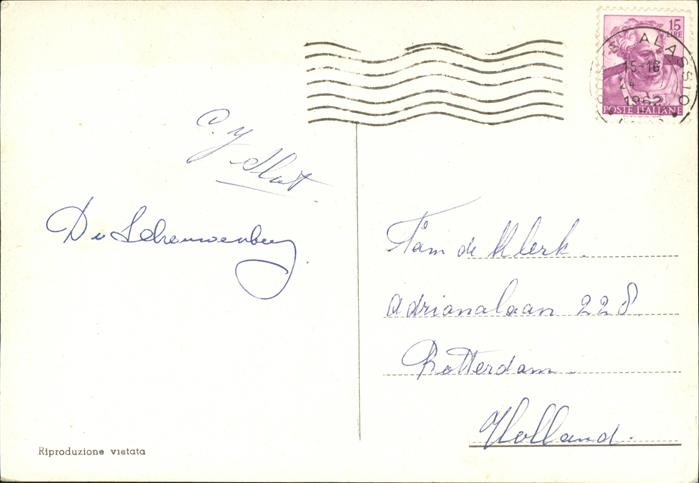 15
LIRE
ALASSIO
15-16
1962
POSTE ITALIANE
C. Y
Fam de Klerk.
Adrianalaan 228
Rotterdam.
Holland.
Riproduzione vietata